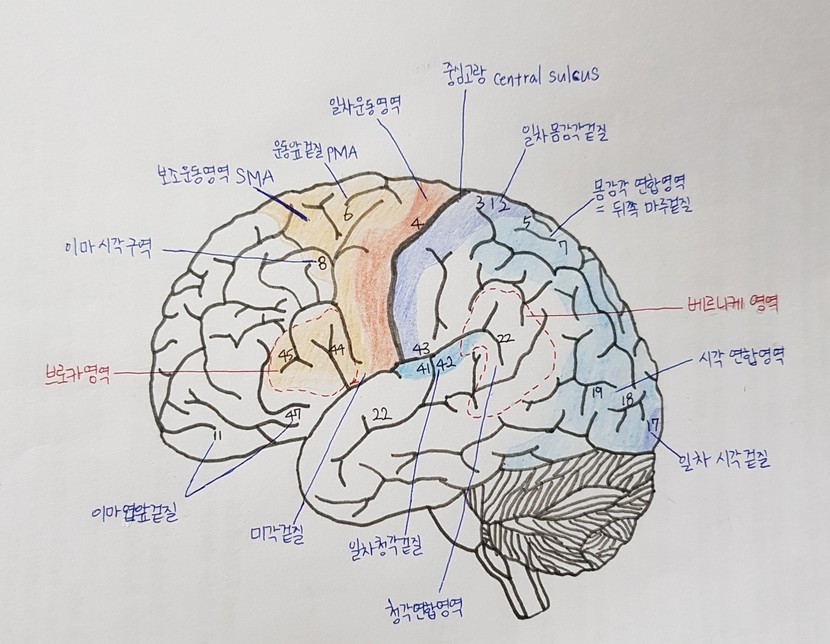 중심고랑 central sulcus
일차운동영역
일차몸감각겉질
운동앞겉질 PMA
보조운동영역 SMA
몸감각 연합영역
= 뒤쪽 마루겉질
이마시각구역
베르니케 영역
시각 연합영역
브로카영역
일차 시각겉질
이마엽앞겉질
미각겉질
일차청각겉질
청각연합영역
6
4
3 1 2
5
7
8
45
44
43
41 42
22
22
19
18
17
47
11